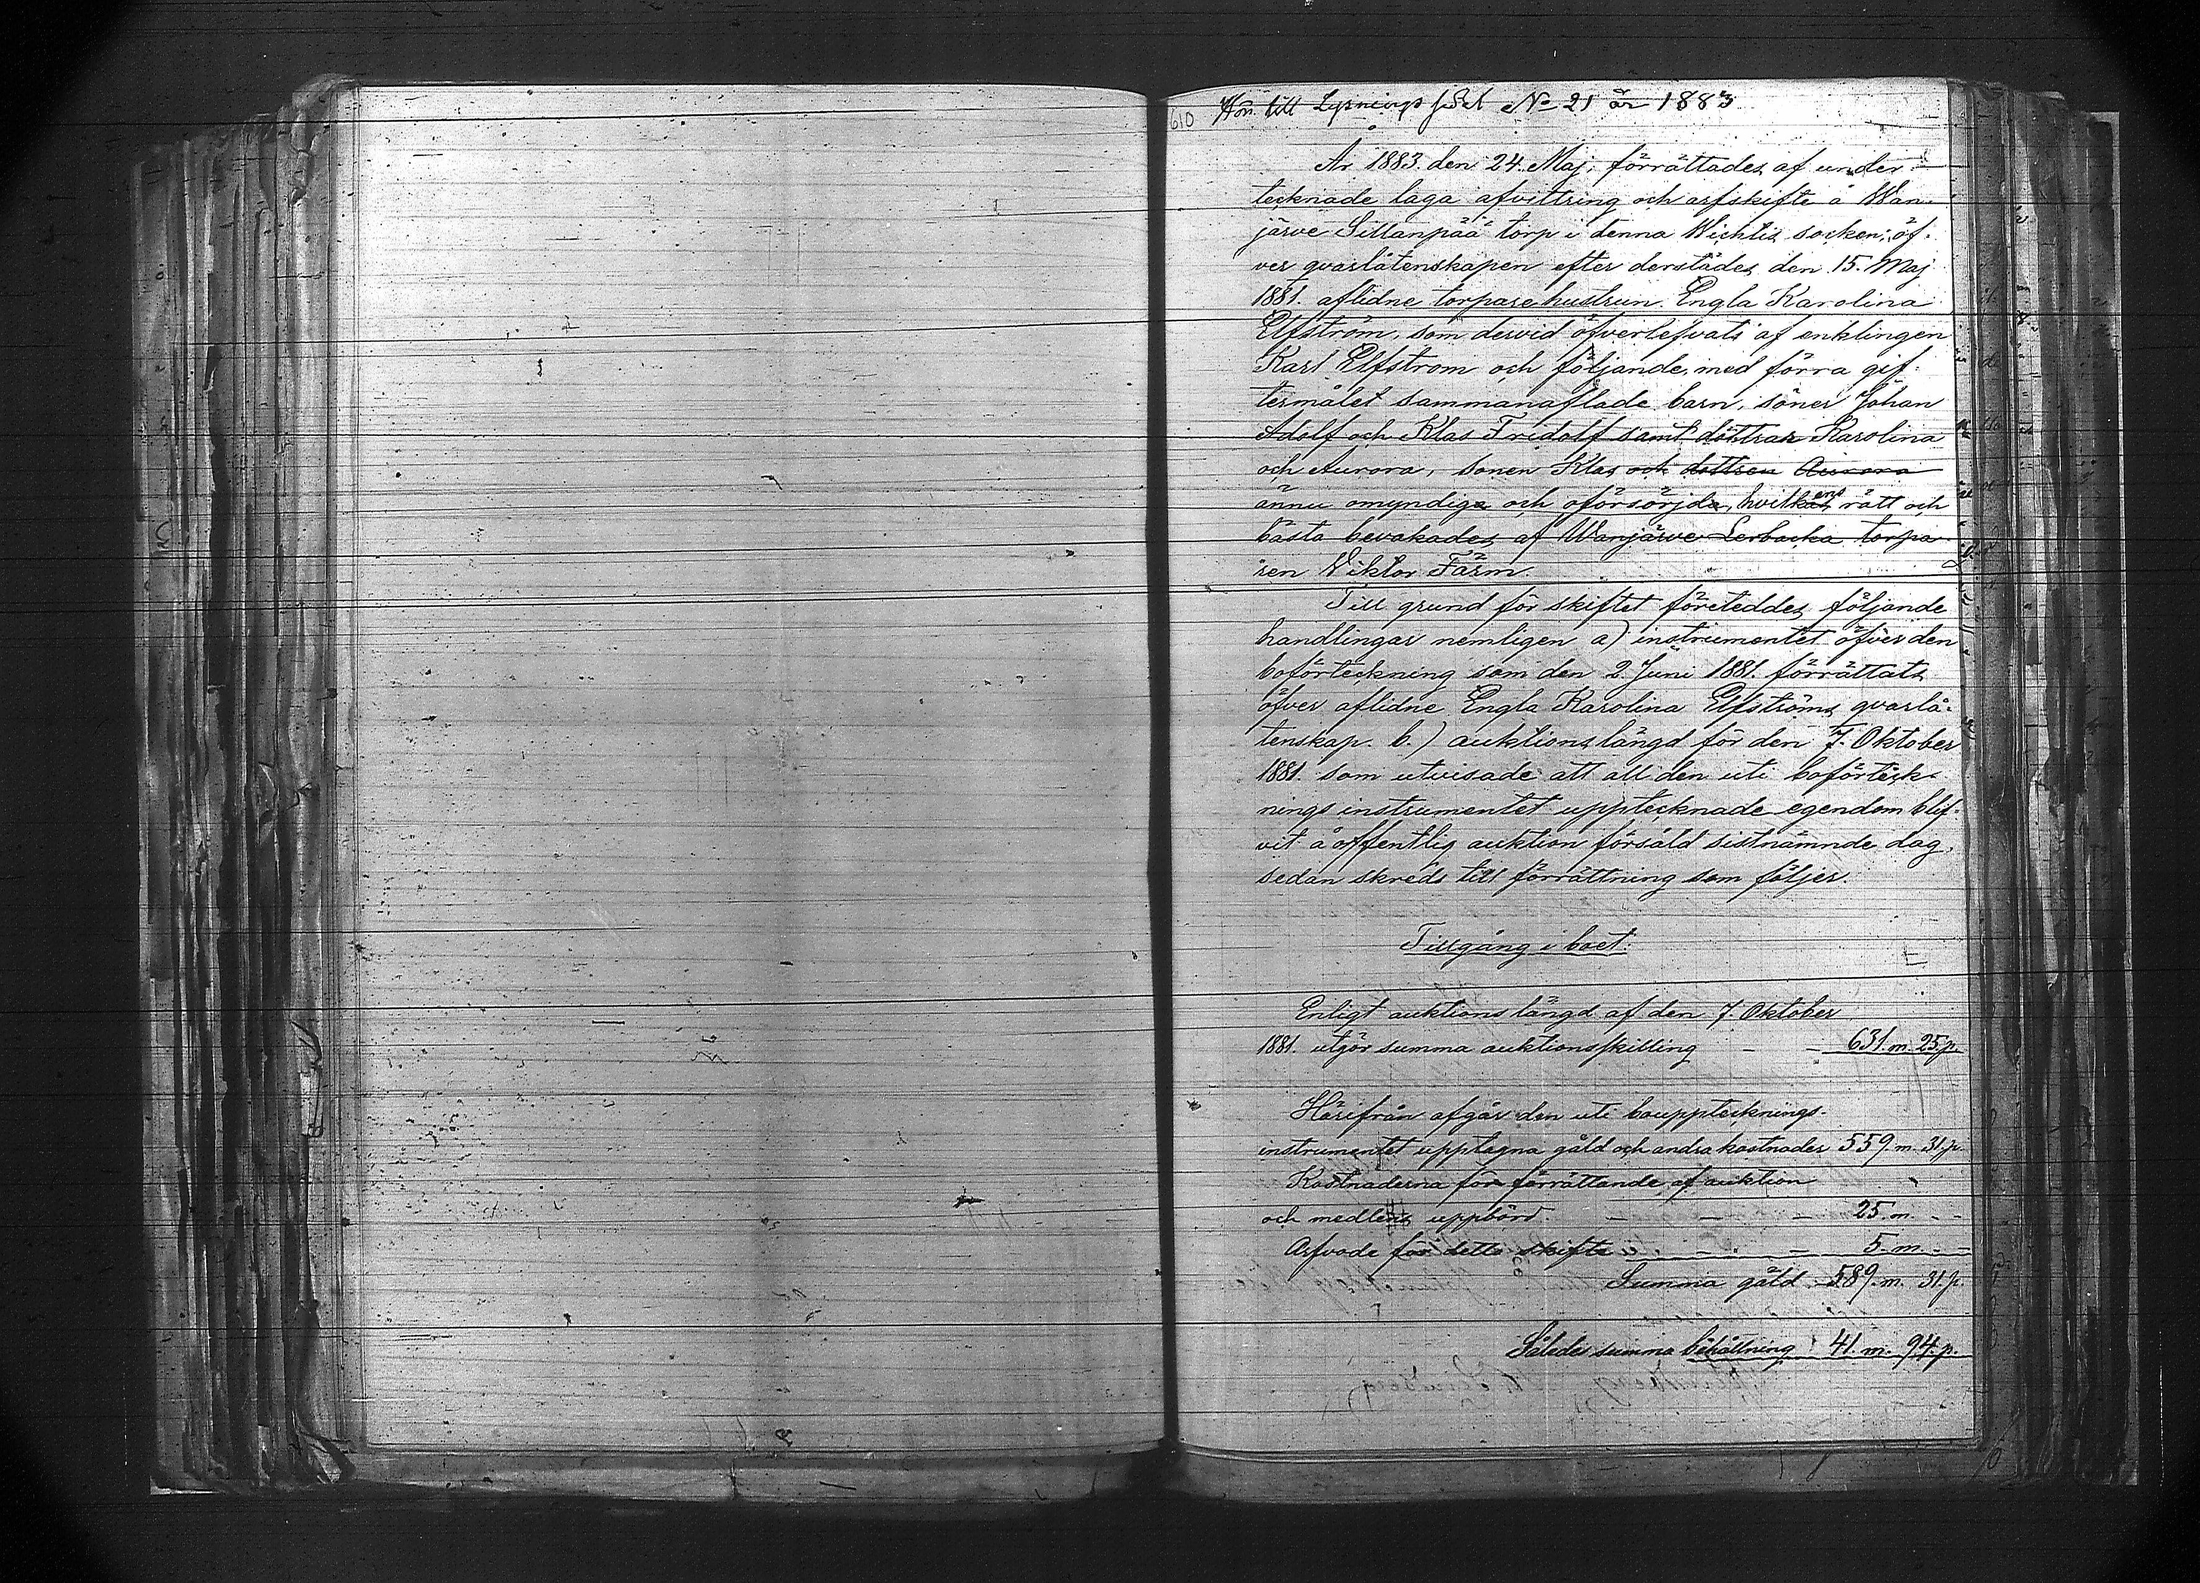 610
Hör. till Lysnings sed. No 21 år 1883
År 1883. den 24. Maj, förrättades af under-
tecknade laga afvittring och arfskifte å Wan-
järwe Sillanpää torp i denna Wichtis socken; öf-
ver qvarlåtenskapen efter derstädes den 15. Maj
1881. aflidne torparehustrun Engla Karolina
Elfström, som dervid öfverlefvats af enklingen
Karl Elfström och följande, med förra gif-
termålet sammanaflade barn, söner Johan
Adolf och Klas Fridolf samt döttrar Karolina
och Aurora, sonen Klas och dottren Aurora
ännu omyndige och oförsörjda, hvilkens rätt och
bästa bevakades af Wanjärwe Lerbacka torpa-
ren Wiktor Färm.
Till grund för skiftet företeddes följande
handlingar nemligen a) instrumentet öfver den
boförteckning som den 2. Juni 1881. förrättats
öfver aflidne Engla Karolina Elfströms qvarlå-
tenskap. b.) auktionslängd för den 7. Oktober
1881. som utvisade att all den uti boförteck-
nings instrumentet upptecknade egendom blif-
vit å offentlig auktion försåld sistnämnde dag,
sedan skreds till förrättning som följer.
Tillgång i boet:
Enligt auktionslängd af den 7 Oktober
1881. utgör summa auktionsskilling - - 631. m. 25 p.
Härifrån afgår den uti bouppteknings-
instrumentet upptagna gäld och andra kostnader 559. m. 31. p.
Kostnaderna för förrättande af auktion
och medlens uppbörd. - - - 25. m. - -
Arfvode för detta skifte - - - 5. m. - -
Summa gäld 589. m. 31. p.
Således summa behållning 41. m. 94. p.